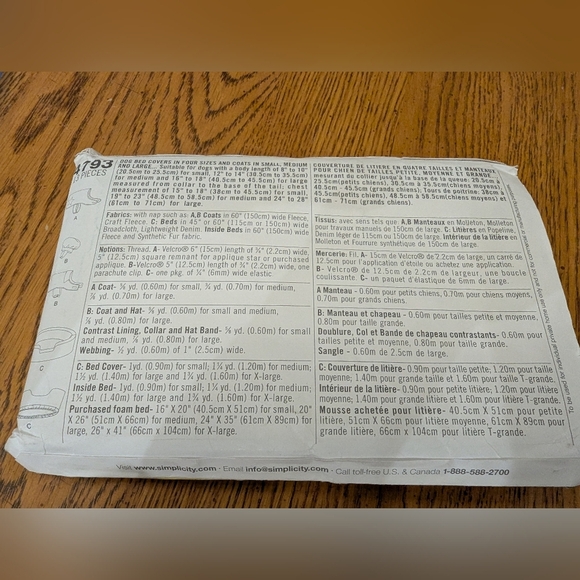 4793
PIECES
DOG BED COVERS IN FOUR SIZES AND COATS IN SMALL, MEDIUM
AND LARGE. Suitable for dogs with a body length of 8" to 10"
(20.5cm to 25.5cm) for small, 12" to 14" (30.5cm to 35.5cm)
for medium and 16" to 18" (40.5cm to 45.5cm) for large
measured from collar to the base of the tail; chest
measurement of 15" to 18" (38cm to 45.5cm) for small,
19" to 23" (48.5cm to 58.5cm) for medium and 24" to 28"
(61cm to 71cm) for large.
Fabrics: with nap such as: A,B Coats in 60" (150cm) wide Fleece,
Craft Fleece; C: Beds in 45" or 60" (115cm or 150cm) wide
Broadcloth, Lightweight Denim. Inside Beds in 60" (150cm) wide
Fleece and Synthetic Fur fabric.
Notions: Thread. A- Velcro® 6" (15cm) length of ⅞" (2.2cm) wide,
5" (12.5cm) square remnant for applique star or purchased
applique. B-Velcro® 5" (12.5cm) length of ⅞" (2.2cm) wide, one
parachute clip. C- one pkg. of ¼" (6mm) wide elastic
A Coat- ⅝ yd. (0.60m) for small, ¾ yd. (0.70m) for medium,
¾ yd. (0.70m) for large.
B: Coat and Hat- ⅝ yd. (0.60m) for small and medium,
⅞ yd. (0.80m) for large.
Contrast Lining, Collar and Hat Band- ⅝ yd. (0.60m) for small
and medium, ⅞ yd. (0.80m) for large.
Webbing- ½ yd. (0.60m) of 1" (2.5cm) wide.
C: Bed Cover- 1yd. (0.90m) for small; 1¼ yd. (1.20m) for medium;
1½ yd. (1.40m) for large and 1¾ yd. (1.60m) for X-large.
Inside Bed- 1yd. (0.90m) for small, 1¼ yd. (1.20m) for medium;
1½ yd. (1.40m) for large and 1¾ yd. (1.60m) for X-large.
Purchased foam bed- 16" X 20" (40.5cm X 51cm) for small, 20"
X 26" (51cm X 66cm) for medium, 24" X 35" (61cm X 89cm) for
large, 26" x 41" (66cm x 104cm) for X-large.
COUVERTURE DE LITIERE EN QUATRE TAILLES ET MANTEAUX
POUR CHIEN DE TAILLES PETITE, MOYENNE ET GRANDE
mesurant du collier jusqu'à la base de la queue: 20.5cm à
25.5cm(petits chiens), 30.5cm à 35.5cm(chiens moyens),
40.5cm - 45.5cm (grands chiens); Tours de poitrine: 38cm à
45.5cm(petits chiens), 48.5cm à 58.5cm(chiens moyens) et
61cm - 71cm (grands chiens).
Tissus: avec sens tels que A,B Manteaux en Molleton, Molleton
pour travaux manuels de 150cm de large. C: Litières en Popeline,
Denim léger de 115cm ou 150cm de large. Intérieur de la litière en
Molleton et Fourrure synthétique de 150cm de large.
Mercerie: Fil. A- 15cm de Velcro® de 2.2cm de large, un carré de
12.5cm pour l'application d'étoile ou achetez une application.
B- Velcro® de 12.5cm de 2.2cm de largeur, une boucle
coulissante. C- un paquet d'élastique de 6mm de large.
A Manteau - 0.60m pour petits chiens, 0.70m pour chiens moyens,
0.70m pour grands chiens.
B: Manteau et chapeau - 0.60m pour tailles petite et moyenne,
0.80m pour taille grande.
Doublure, Col et Bande de chapeau contrastants- 0.60m pour
tailles petite et moyenne, 0.80m pour taille grande.
Sangle - 0.60m de 2.5cm de large.
C: Couverture de litière- 0.90m pour taille petite; 1.20m pour taille
moyenne; 1.40m pour grande taille et 1.60m pour taille T-grande.
Intérieur de la litière- 0.90m pour petite litière, 1.20m pour litière
moyenne, 1.40m pour grande litière et 1.60m pour litière T-grande.
Mousse achetée pour litière- 40.5cm X 51cm pour petite
litière, 51cm X 66cm pour litière moyenne, 61cm X 89cm pour
grande litière, 66cm x 104cm pour litière T-grande.
C
C
Visit www.simplicity.com · Email info@simplicity.com · Call toll-free U.S. & Canada 1-888-588-2700